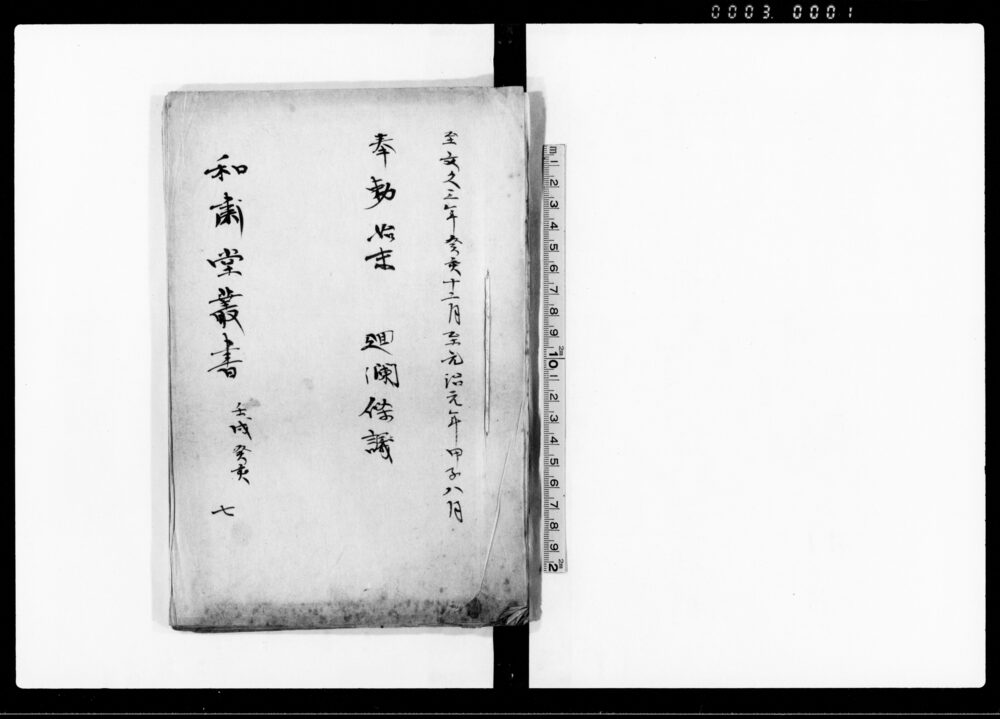 0003 0001
至文久三年癸亥十二月至元治元年甲子八月
奉勅始末 廻瀾條議
和肅堂叢書 壬戌癸亥 七
m 1 2 3 4 5 6 7 8 9 10 1 2 3 4 5 6 7 8 9 2